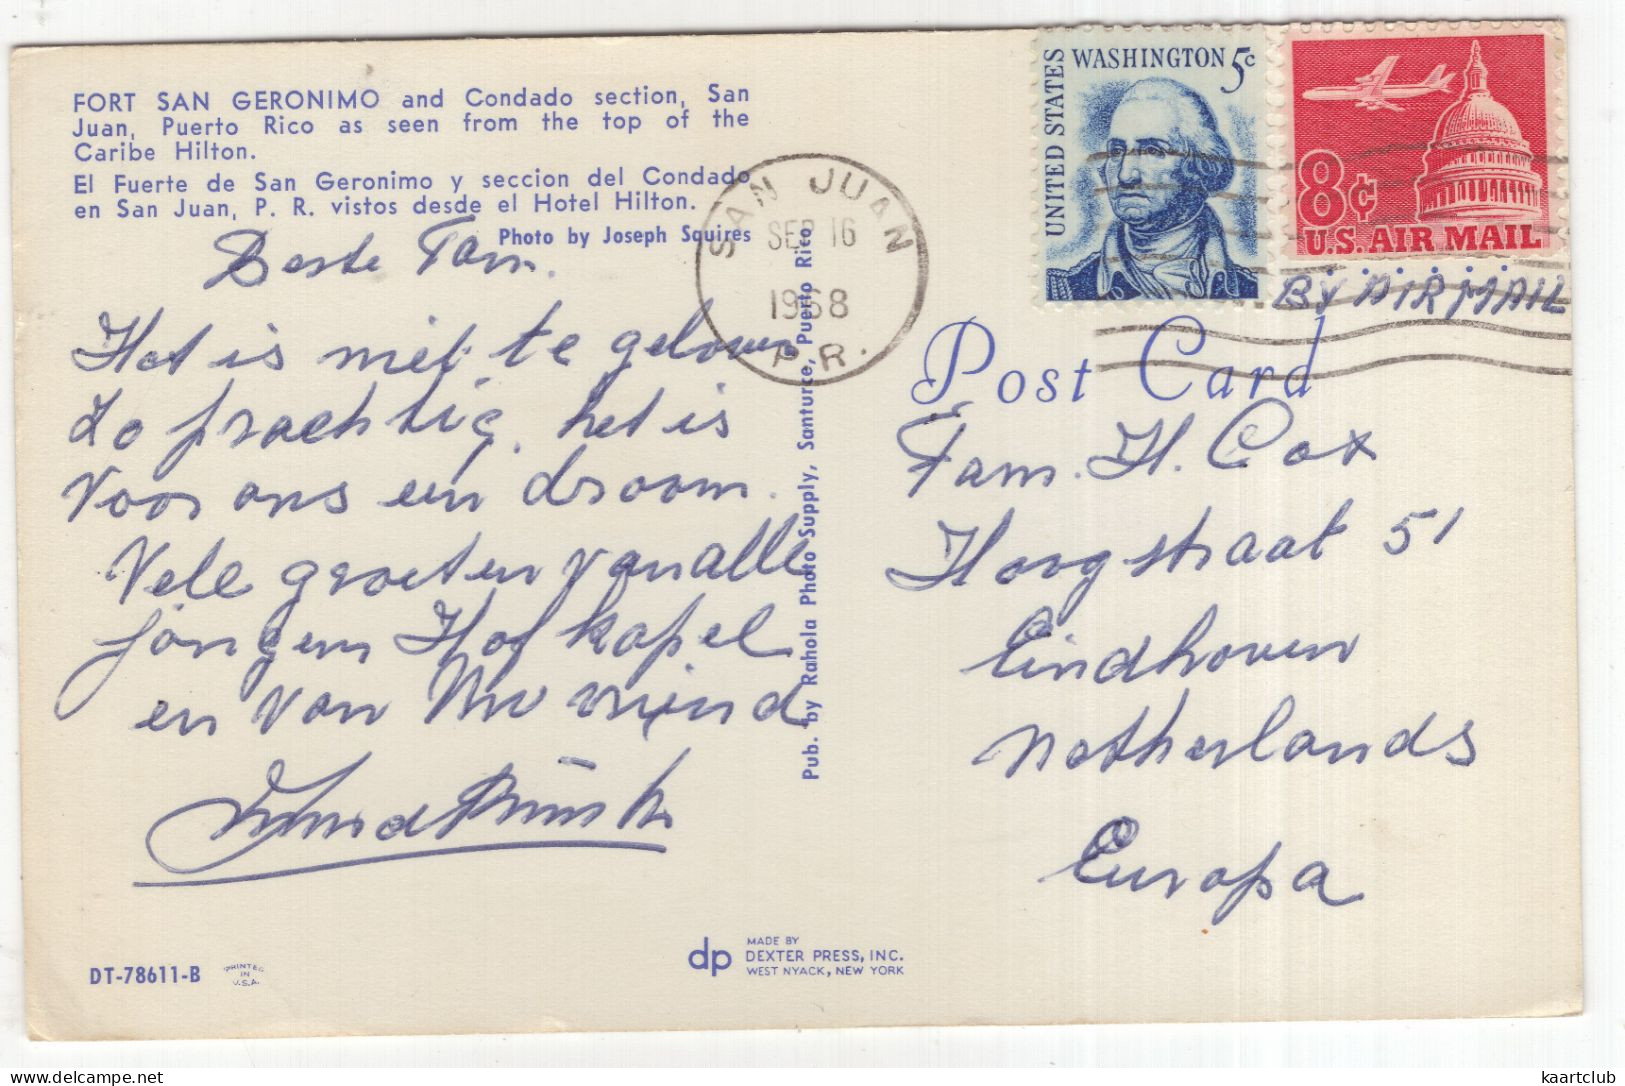 FORT SAN GERONIMO and Condado section, San
Juan, Puerto Rico as seen from the top of the
Caribe Hilton.
El Fuerte de San Geronimo y seccion del Condado
en San Juan, P. R. vistos desde el Hotel Hilton.
Photo by Joseph Squires
Beste Fam.
Het is niet te geloven
zo prachtig, het is
voor ons een droom.
Vele groeten van alle
jongens Hofkapel
en van Uw vriend
DT-78611-B
PRINTED
IN
U.S.A.
dp
MADE BY
DEXTER PRESS, INC.
WEST NYACK, NEW YORK
Pub. by Rahola Photo Supply, Santurce, Puerto Rico
SAN JUAN
SEP 16
1968
P.R.
UNITED STATES
WASHINGTON 5c
8¢
U.S. AIR MAIL
BY AIRMAIL
Post Card
Fam. H. Cox
Hoogstraat 51
Eindhoven
Netherlands
Europa
kaartclub